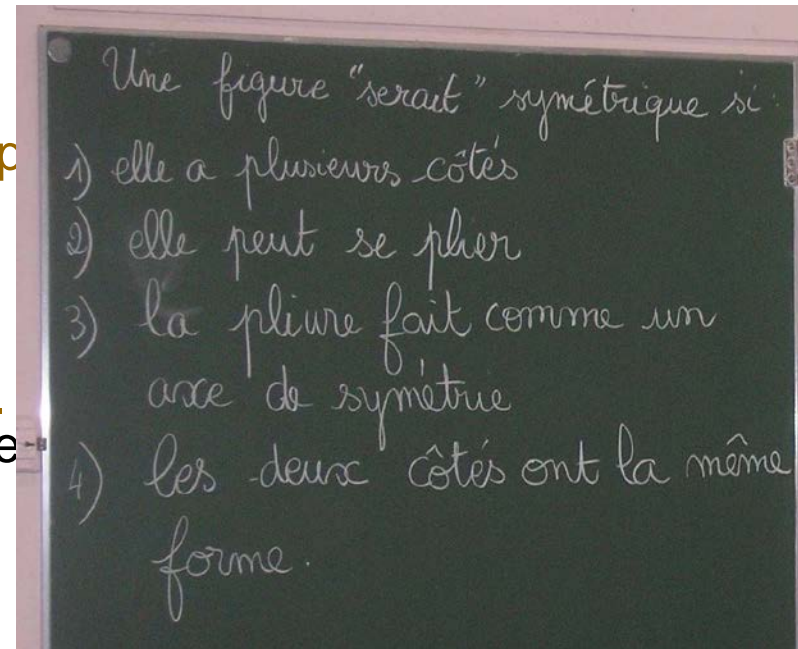 Une figure "serait" symétrique si :
1) elle a plusieurs côtés
2) elle peut se plier
3) la pliure fait comme un
axe de symétrie
4) les deux côtés ont la même
forme.